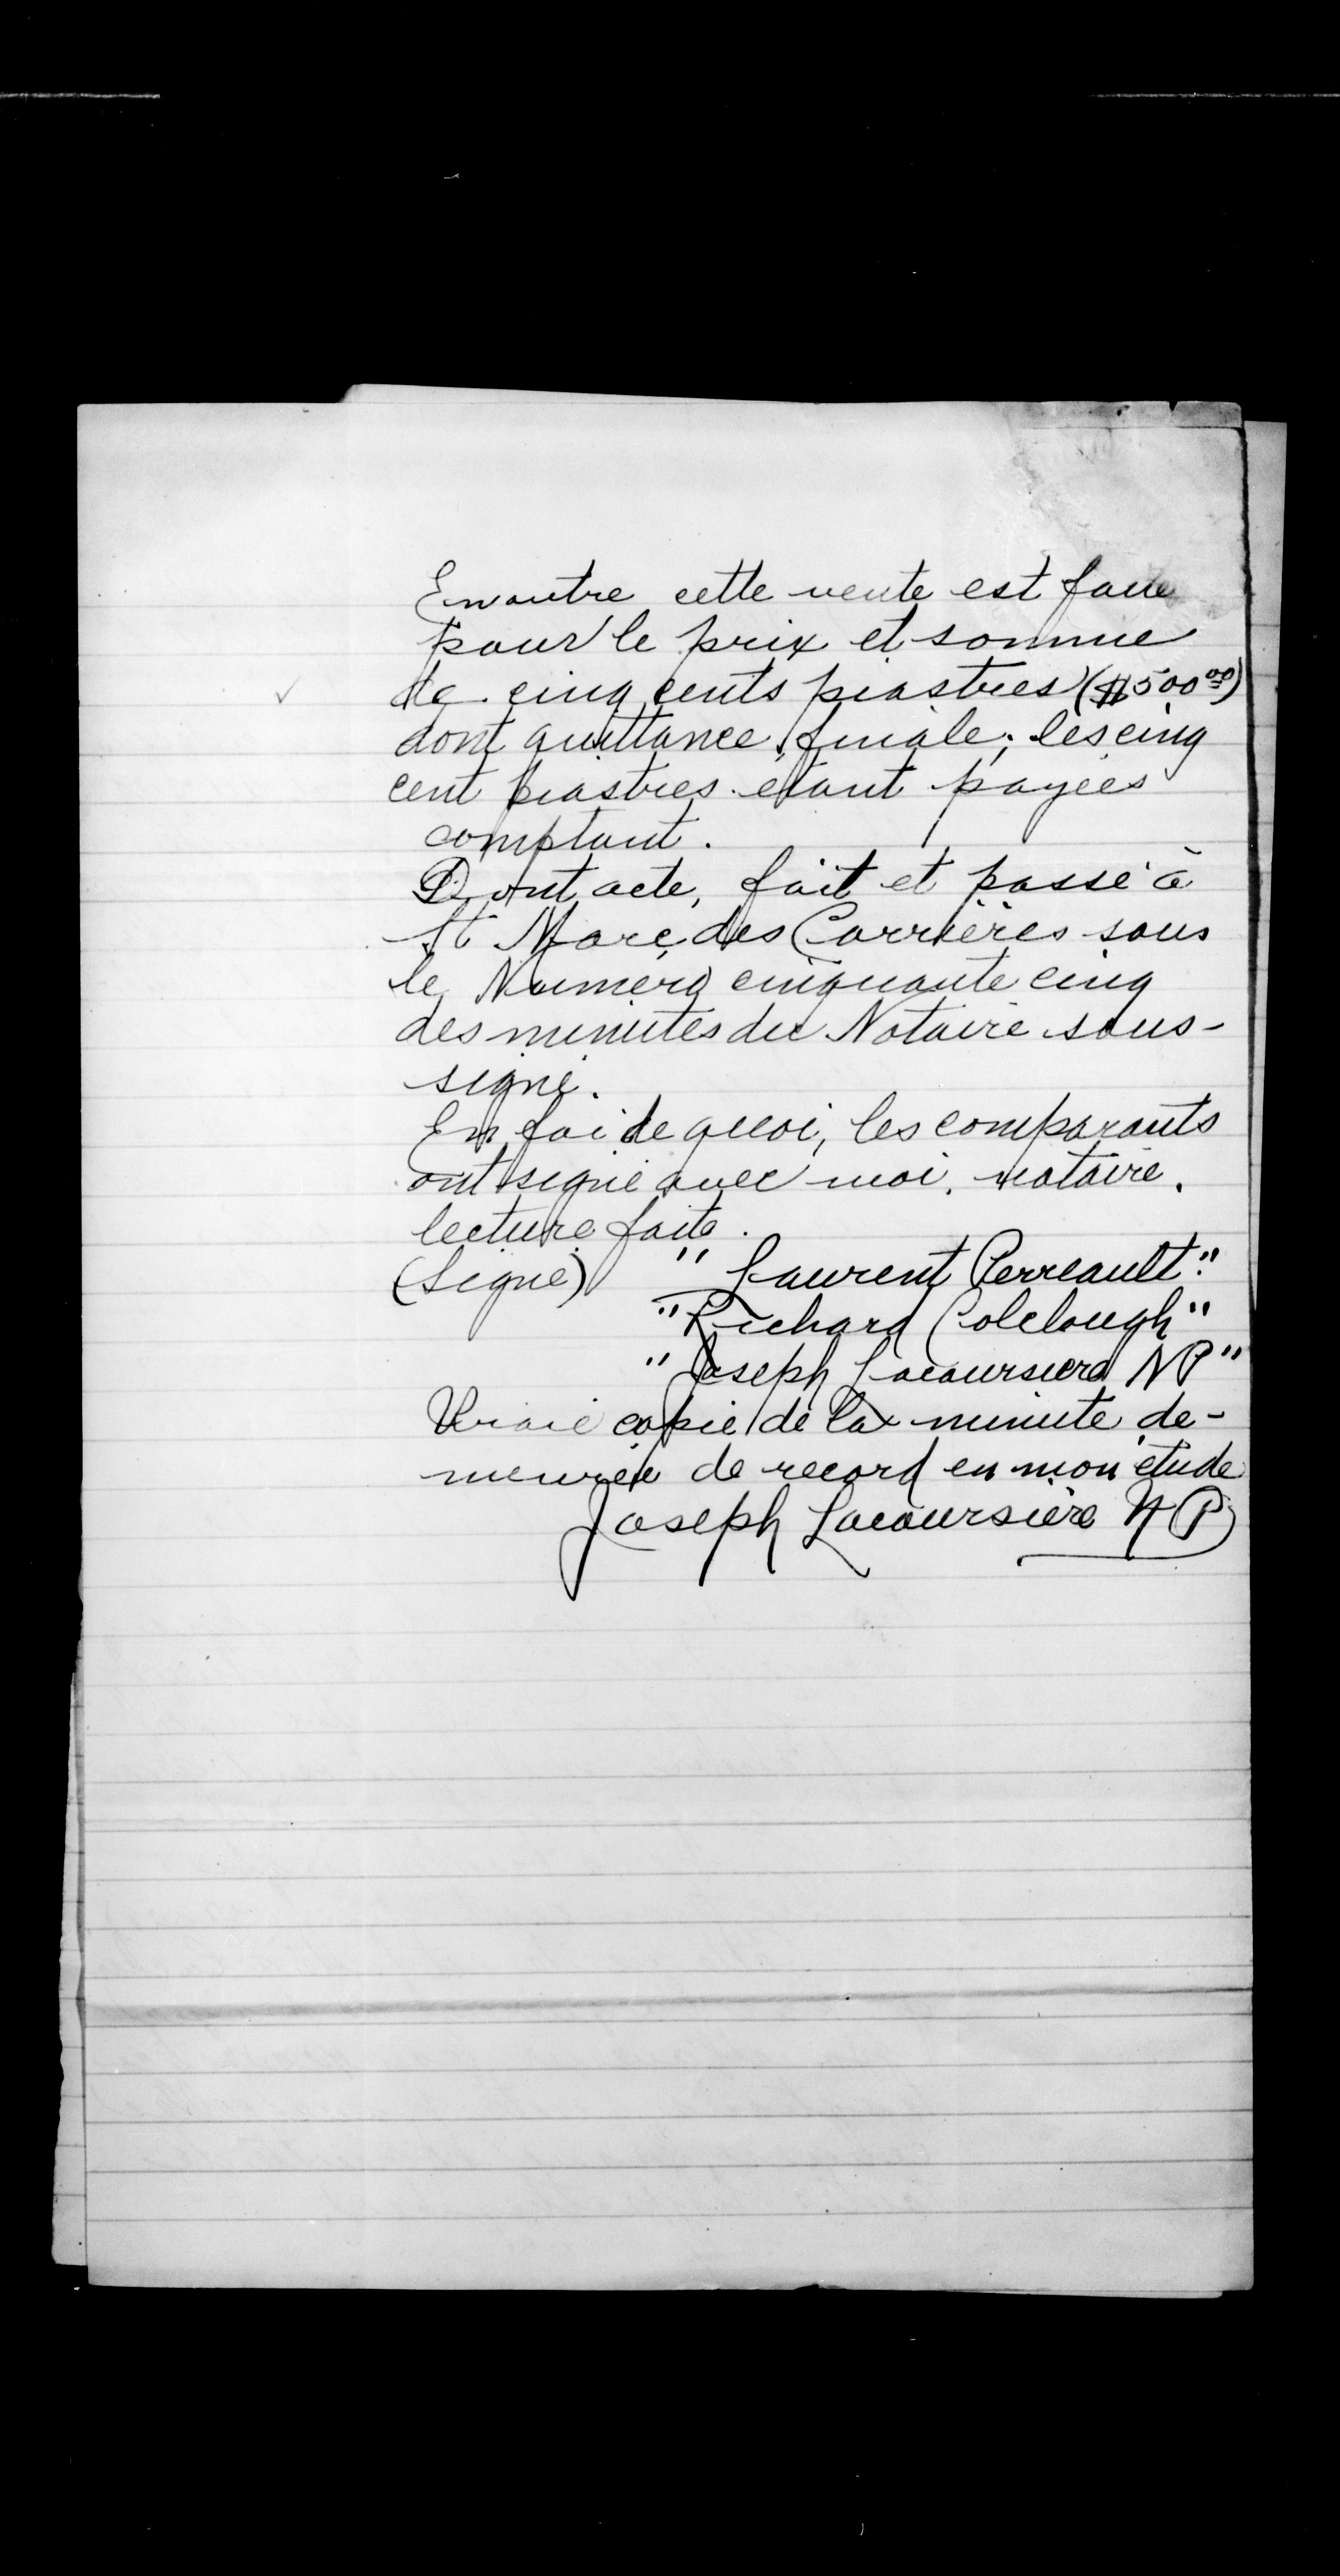 En outre cette vente est faite
pour le prix et somme
de cinq cents piastres ($500.00)
dont quittance finale; les cinq
cent piastres étant payées
comptant.
Dont acte, fait et passé à
St Marc des Carrières sous
le Numéro cinquante cinq
des minutes du Notaire sous-
signé.
En foi de quoi, les comparants
ont signé avec moi, notaire.
lecture faite.
(Signé) "Laurent Perreault."
"Richard Colclough"
"Joseph Lacoursière NP"
Vraie copie de la minute de-
meurée de record en mon étude
Joseph Lacoursière NP